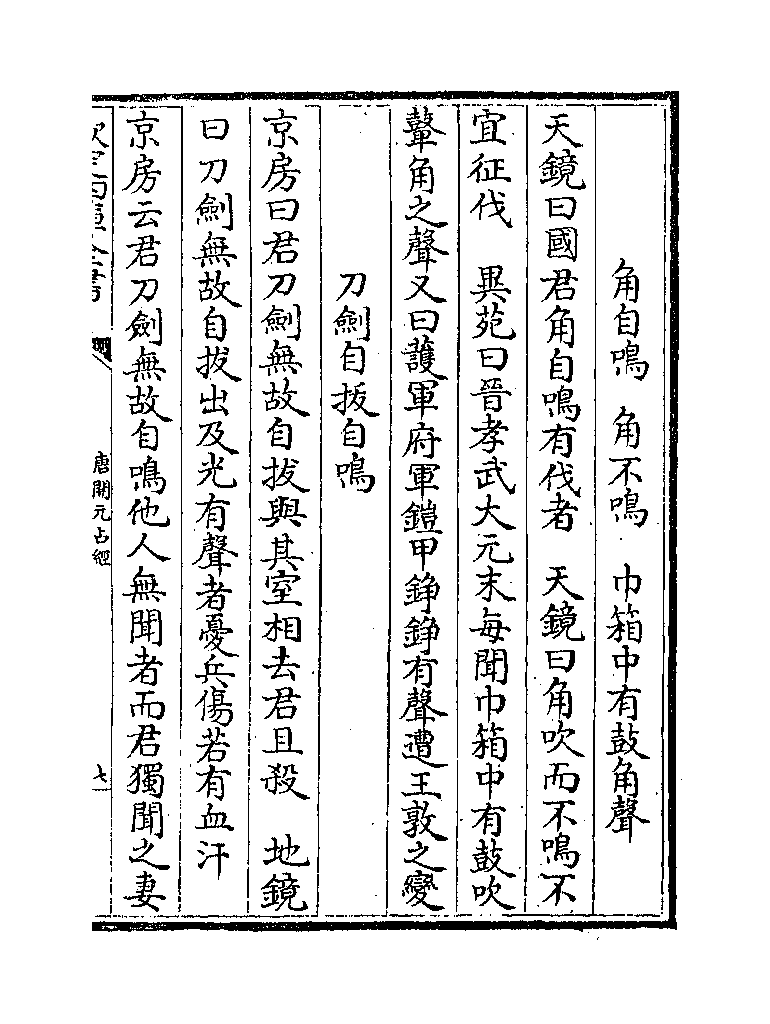 角自鳴　角不鳴　巾箱中有鼓角聲
天鏡曰國君角自鳴有伐者　天鏡曰角吹而不鳴不
宜征伐　異苑曰晉孝武大元末每聞巾箱中有鼓吹
鼙角之聲又曰護軍府軍鎧甲錚錚有聲遭王敦之變
刀劍自拔自鳴
京房曰君刀劍無故自拔與其室相去君且殺　地鏡
曰刀劍無故自拔出及光有聲者憂兵傷若有血汗
京房云君刀劍無故自鳴他人無聞者而君獨聞之妻
欽定四庫全書
唐開元占經
七